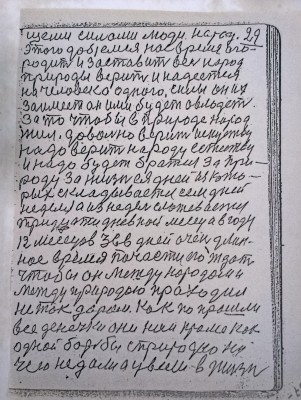 щеми силами люди, народ. 29
Этого добъемся на время его
родит и заставит весь народ
природы верить и надеется
на человека одного, силы он их
займет он ими будет овлодеть.
За то чтобы в природе народ
жил. довольно верить искуству
надо верить народу естеству
и надо будет браться за при-
роду За жизнь сядней из кото-
рых складывается семь дней
неделя а из недель сложевается
тридцати дневной месец а в году
12 месецов 366 дней очен длин-
ное время почести подждать
чтобы он между народами
между природою проходил
не ток даром. Как по прошли
все деночки они ням кроме как
одной борьбы с природою ни
чего не дали а увели в жизни